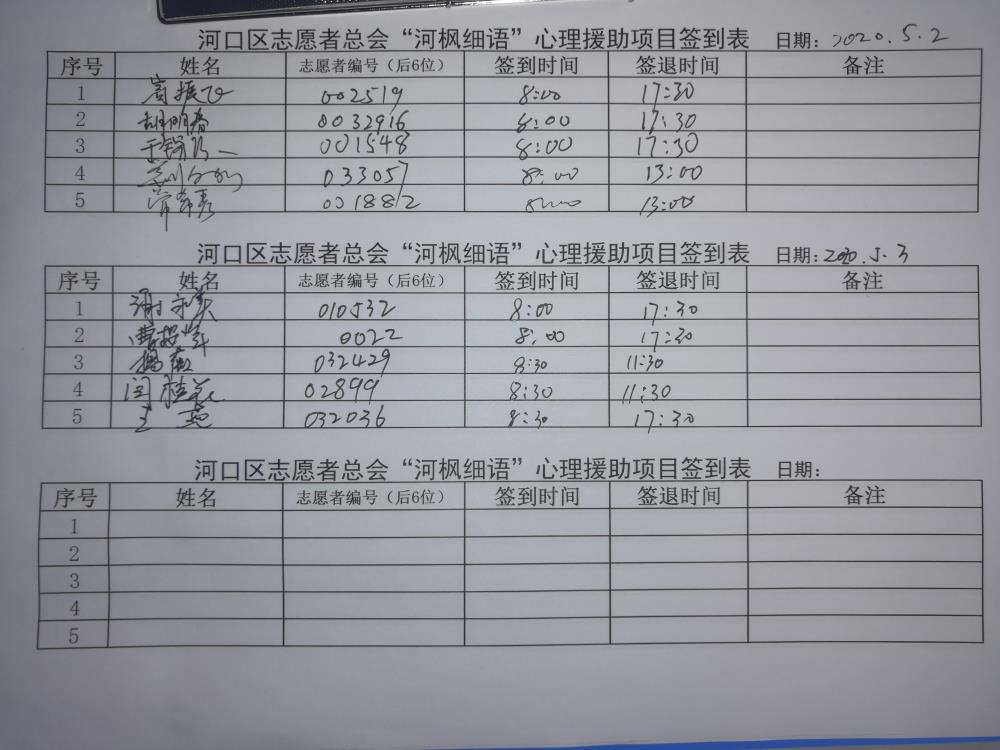 河口区志愿者总会“河枫细语”心理援助项目签到表 日期：2020.5.2
序号 姓名 志愿者编号（后6位） 签到时间 签退时间 备注
1 002519 8:00 17:30
2 胡明春 0032916 8:00 17:30
3 001548 8:00 17:30
4 033057 8:00 13:00
5 001882 13:00
河口区志愿者总会“河枫细语”心理援助项目签到表 日期：2020.5.3
序号 姓名 志愿者编号（后6位） 签到时间 签退时间 备注
1 谢永美 010532 8:00 17:30
2 0022 8:00 17:30
3 杨燕 032429 8:30 11:30
4 闫桂花 02899 8:30 11:30
5 王燕 032036 8:30 17:30
河口区志愿者总会“河枫细语”心理援助项目签到表 日期：
序号 姓名 志愿者编号（后6位） 签到时间 签退时间 备注
1
2
3
4
5